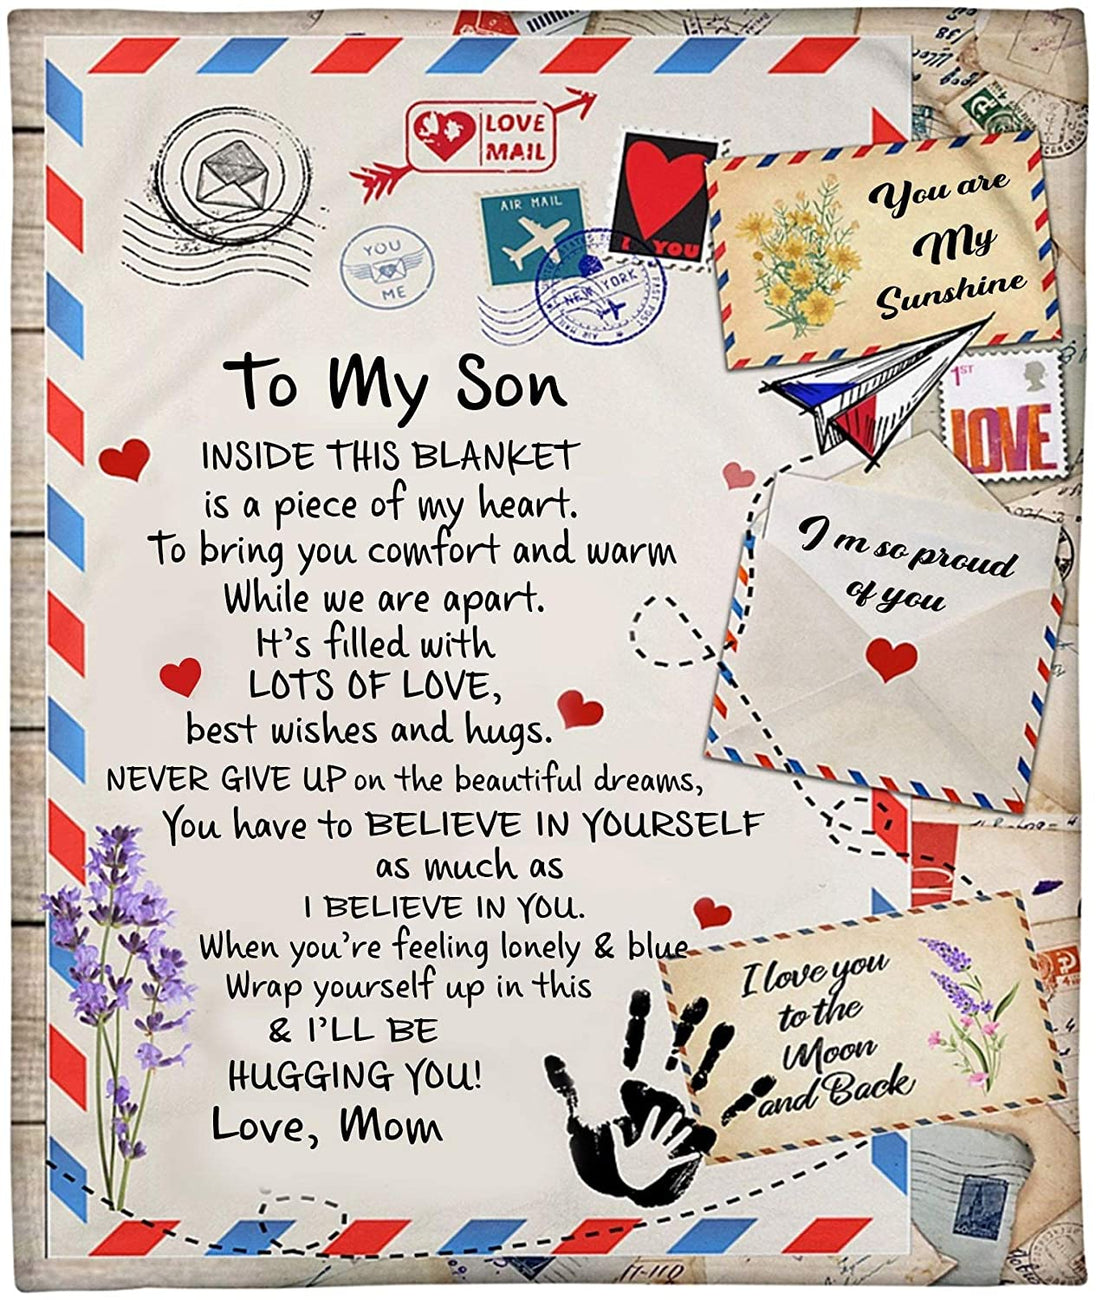 LOVE
MAIL
AIR MAIL
YOU
ME
YOU
NEW YORK
You are
My
Sunshine
1ST
LOVE
To My Son
INSIDE THIS BLANKET
is a piece of my heart.
To bring you comfort and warm
While we are apart.
It's filled with
LOTS OF LOVE,
best wishes and hugs.
NEVER GIVE UP on the beautiful dreams,
You have to BELIEVE IN YOURSELF
as much as
I BELIEVE IN YOU.
When you're feeling lonely & blue
Wrap yourself up in this
& I'LL BE
HUGGING YOU!
Love, Mom
I m so proud
of you
I love you
to the
Moon
and Back